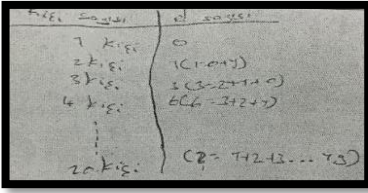 Kişi sayısı el sayısı
1 kişi 0
2 kişi 1(1-0+1)
3 kişi 3(3=2+1+0)
4 kişi 6(6=3+2+1)
20 kişi (?= 1+2+3...+19)